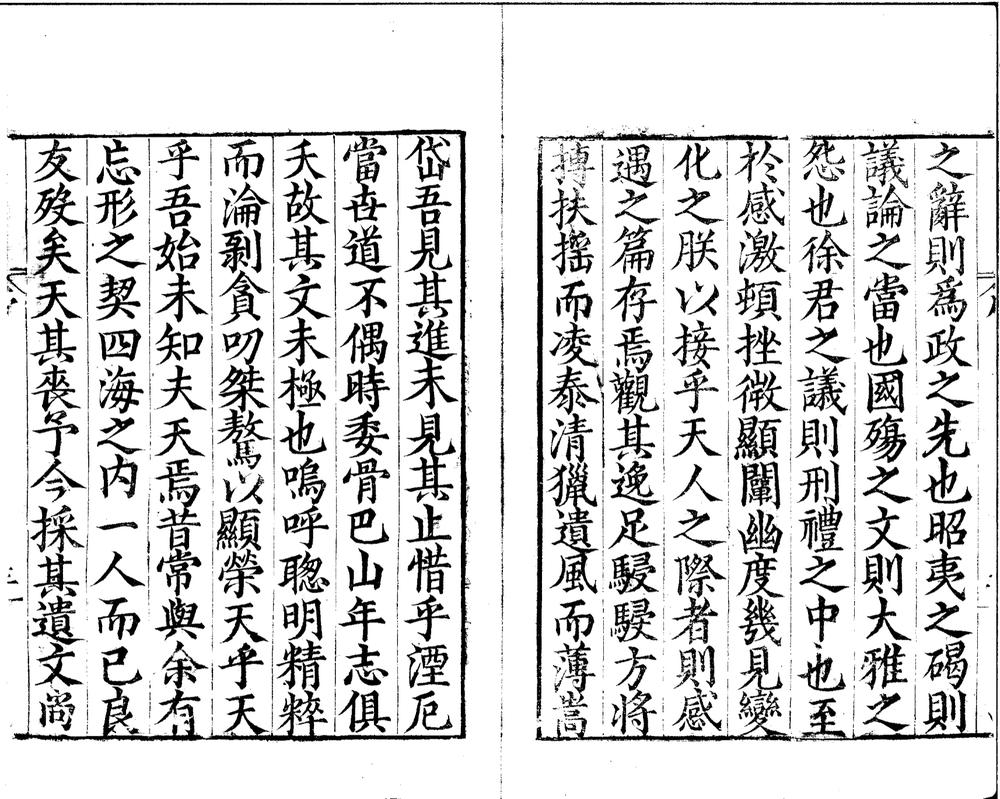 之辭則爲政之先也昭夷之碣則
議論之當也國殤之文則大雅之
怨也徐君之議則刑禮之中也至
扵感激頓挫微顯闡幽度㡬見變
化之朕以接乎天人之際者則感
遇之篇存焉觀其逸足駸駸方將
摶扶摇而凌泰清獵遺風而薄嵩
岱吾見其進未見其止惜乎湮厄
當世道不偶時委骨巴山年志俱
夭故其文未極也嗚呼聦明精粹
而淪剥貪叨桀驁以顯榮天乎天
乎吾始未知夫天焉昔常與余有
忘形之契四海之内一人而已良
友殁矣天其喪予今採其遺文尚